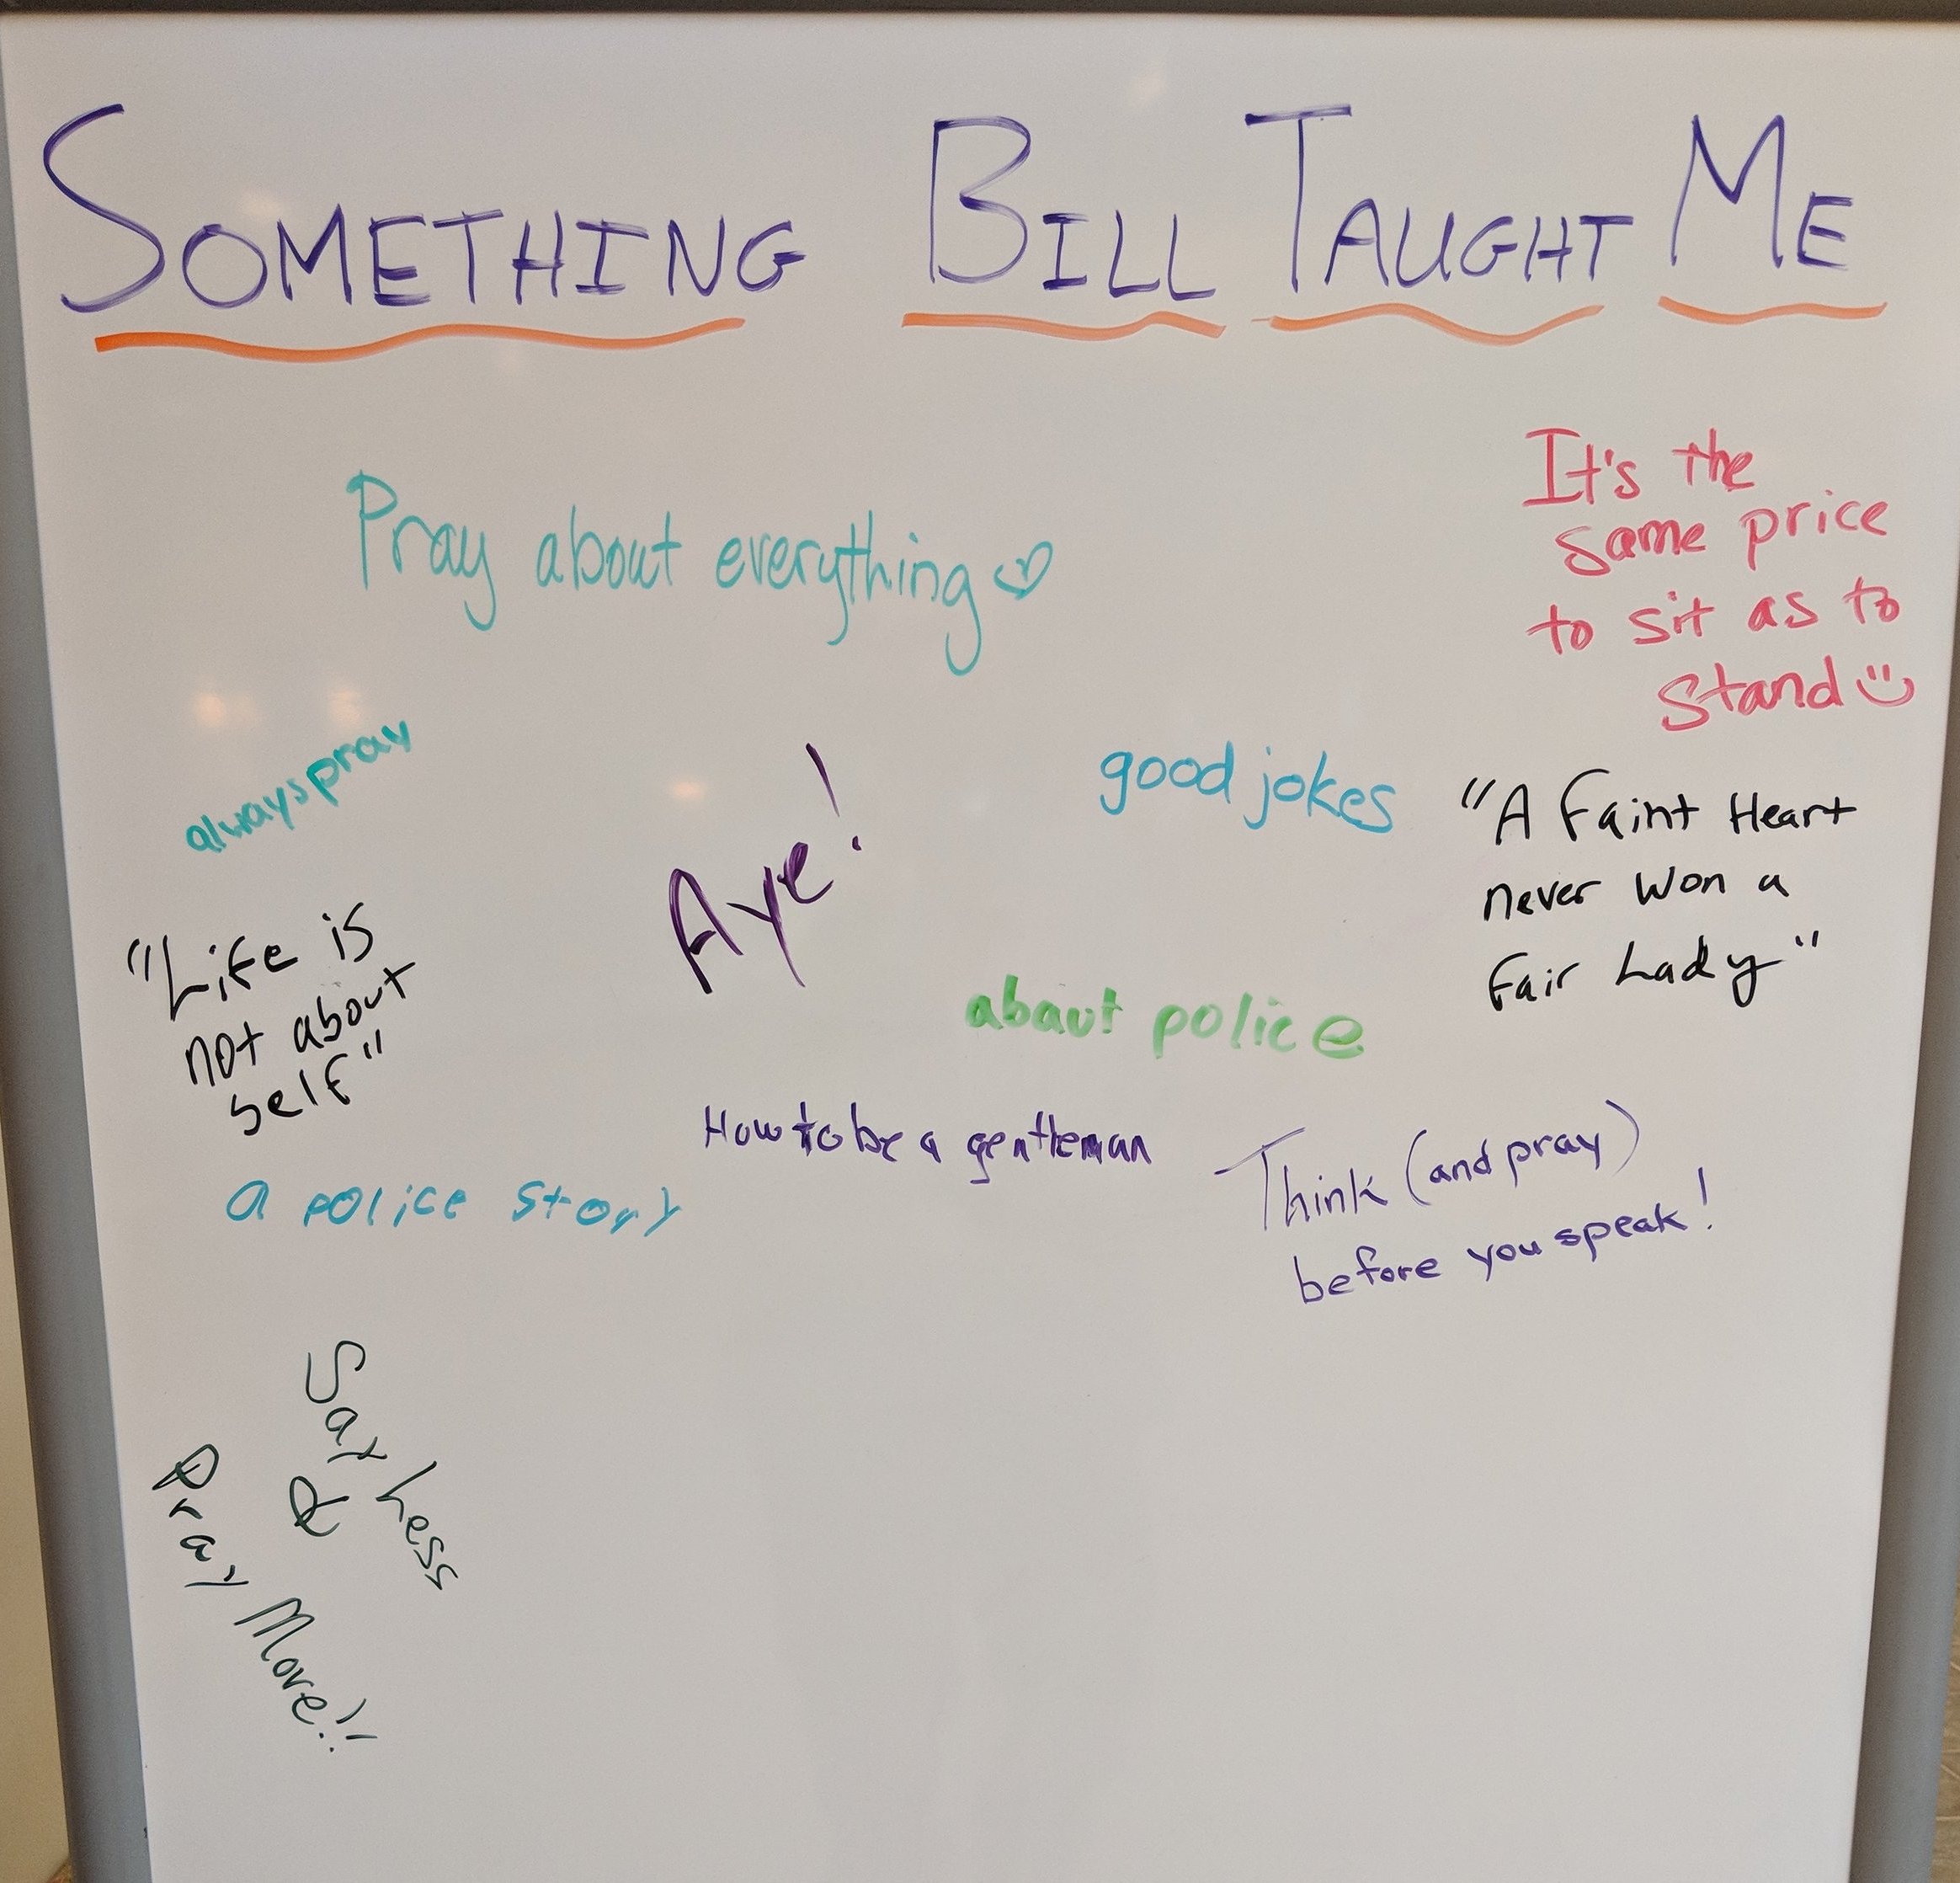 SOMETHING BILL TAUGHT ME
Pray about everything
It's the
same price
to sit as to
Stand
always pray
Aye!
good jokes
"A Faint Heart
never won a
Fair Lady"
"Life is
not about
self"
abaut police
How to be a gentleman
a police story
Think (and pray)
before you speak!
Say Less
&
Pray More!!